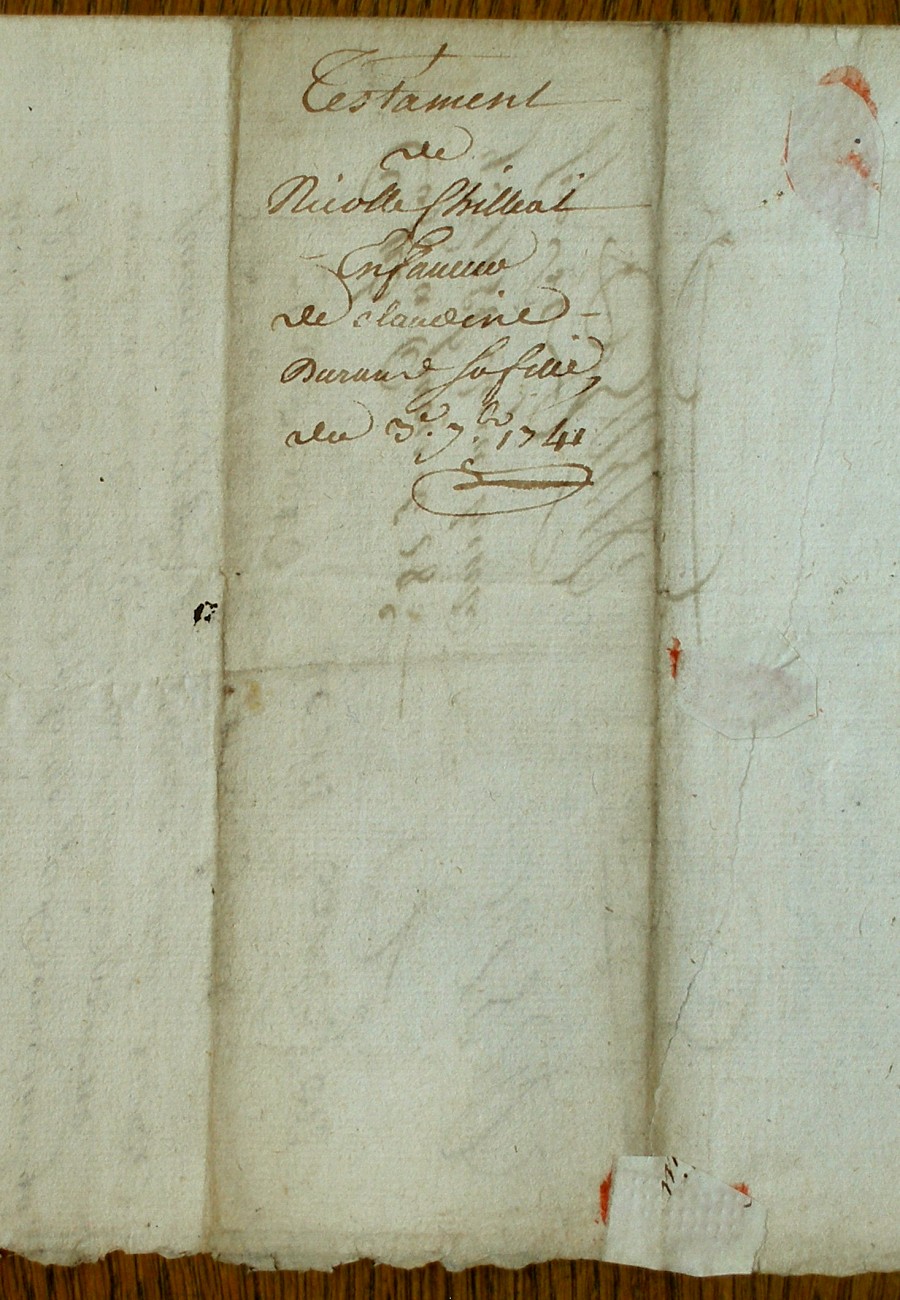 Testament
de
Nicolle Chilleat
En faueur
de claudine
Durand sa fille
du 3e. 7bre 1741